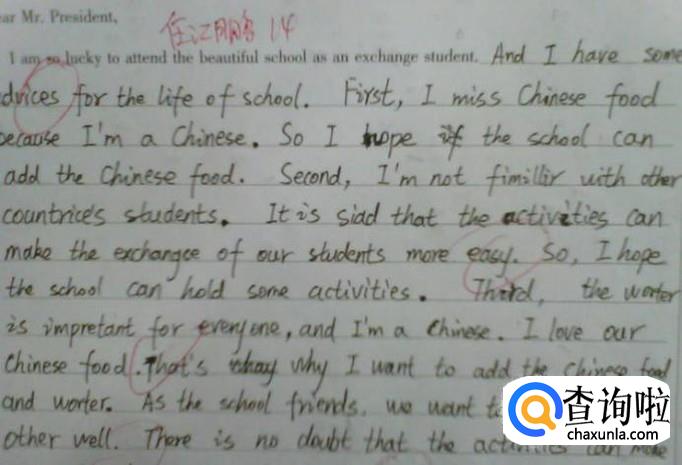 ar Mr. President,
任江丽 14
I am so lucky to attend the beautiful school as an exchange student. And I have some
dvices for the life of school. First, I miss Chinese food
because I'm a Chinese. So I hope if the school can
add the Chinese food. Second, I'm not fimillir with other
countrice's students. It is siad that the activities can
make the exchangee of our students more easy. So, I hope
the school can hold some activities. Third, the worter
is impretant for everyone, and I'm a Chinese. I love our
Chinese food. That's why I want to add the Chinese food
and worter. As the school friends, we want to
other well. There is no doubt that the activities can make
查询啦
chaxunla.com